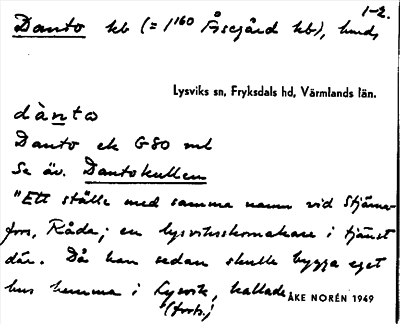 1-2.
Danto kb (= 1¹⁶⁰ Åsegård kb), hmds
Lysviks sn, Fryksdals hd, Värmlands län.
dànta
Danto ek G80 ml
Se äv. Dantokullen
"Ett ställe med samma namn vid Stjärns-
fors, Råda; en lysviksskomakare i tjänst
där. Då han sedan skulle bygga eget
hus hemma i Lysvik, kallade
(forts.)
ÅKE NORÉN 1949